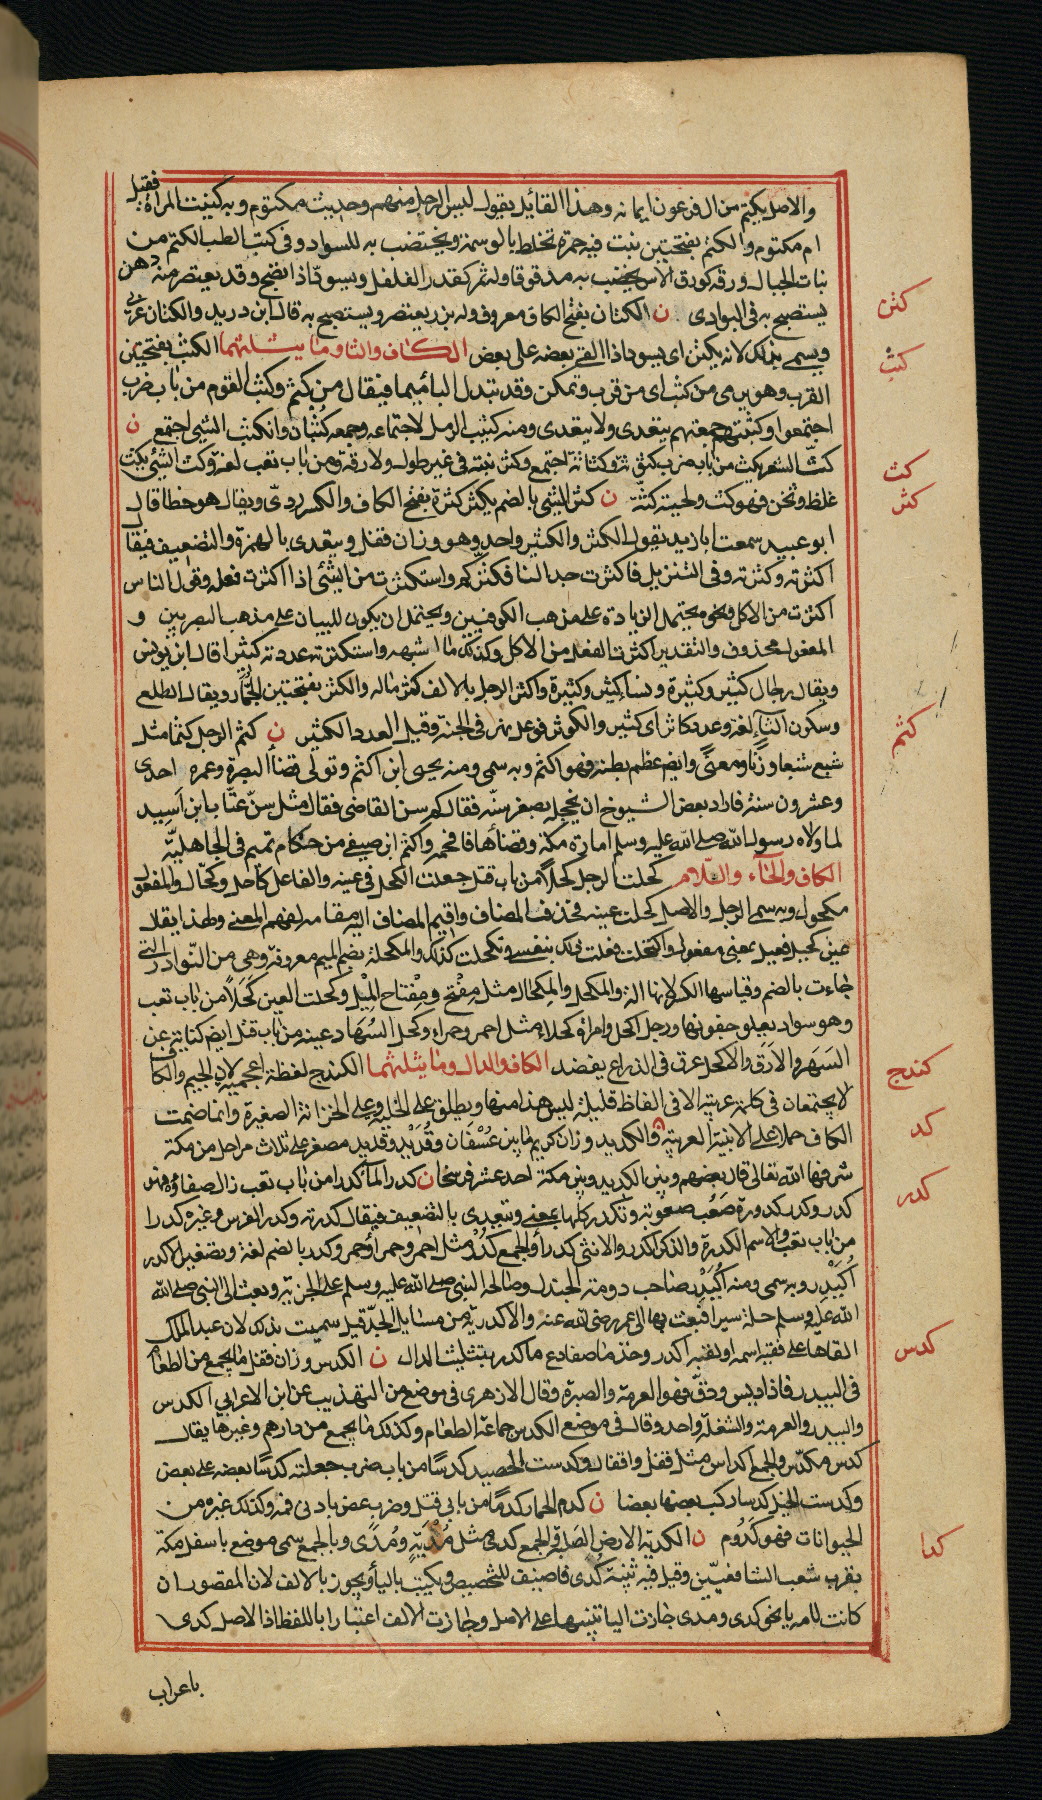 والاصل يكتم من ال فرعون ايمانه وهذا القائد يقول ليس الرجل منهم وحديث مكتوم وبه كنيت المراة فقيل
ام مكتوم والكتم بفتحتين نبت فيه حمرة تخلط بالوسمة ويختضب به للسواد وفي كتب الطب الكتم من
نبات الجبال ورقه كورق الاس يختضب به مدقوقا وله ثمر كقدر الفلفل ويسود اذا نضج وقد يعتصر منه دهن
يستصبح به في البوادي ن الكتان بفتح الكاف معروف وله بزر يعتصر ويستصبح به قال ابن دريد والكتان عربي
وسمي بذلك لانه يكتن اي يسود اذا القي بعضه على بعض الكاف والثاء وما يثلثهما الكثب بفتحتين
القرب وهو يرمي من كثب اي من قرب وتمكن وقد تبدل الباء ميما فيقال من كثم وكثب القوم من باب ضرب
اجتمعوا وكثبتهم جمعتهم يتعدى ولا يتعدى ومنه كثيب الرمل لاجتماعه وجمعه كُثبان وانكثب الشيء اجتمع ن
كثّ الشعر يكث من باب ضرب كثوثة وكثاثة اجتمع وكثر نبته في غير طول ولا رقة ومن باب تعب لغة وكث الشيء يكث
غلظ وثخن فهو كث ولحية كثّة ن كثر الشيء بالضم يكثر كثرة بفتح الكاف والكسر ردي ويقال هو خطا قال
ابو عبيد سمعت ابا زيد يقول الكثر والكثير واحد وهو وزان قفل ويتعدى بالهمزة والتضعيف فيقال
اكثرته وكثرته وفي التنزيل فاكثرت جدالنا فكثّركم واستكثرت من الشيء اذا اكثرت فعله وقول الناس
اكثرت من الاكل ونحوه يحتمل الزيادة على مذهب الكوفيين ويحتمل ان يكون للبيان على مذهب البصريين و
المفعول محذوف والتقدير اكثرت الفعل من الاكل وكذلك ما اشبهه واستكثرته عددته كثيرا قال ابن يونس
ويقال رجال كثير وكثيرة ونساء كثير وكثيرة واكثر الرجل بالالف كثر ماله والكثر بفتحتين الجُمّار ويقال الطلع
وسكون الثاء لغة وعدد كاثر اي كثير والكوثر فوعل نهر في الجنة وقيل العدد الكثير ن كثم الرجل كثما مثل
شبع شبعا وزنًا ومعنًى وايضا عظم بطنه فهو اكثم وبه سمي ومنه يحيى ابن اكثم وتولى قضاء البصرة وعمره احدى
وعشرون سنة فاراد بعض الشيوخ ان يخجله بصغر سنّه فقال كم سن القاضي فقال مثل سنّ عتّاب ابن اَسِيد
لما ولاه رسول الله صلى الله عليه وسلم امارة مكة وقضاءها فافحمه واكثم ابن صيفي من حكام تميم في الجاهليّة
الكاف والحاء واللّام كحلت الرجل كحلًا من باب قتل جعلت الكحل في عينه والفاعل كاحل وكحّال والمفعول
مكحول وبه سمي الرجل والاصل كحلت عينه فحذف المضاف واقيم المضاف اليه مقامه لفهم المعنى ولهذا يقال
عين كحيل فعيل بمعنى مفعول واكتحلت فعلت ذلك بنفسي وتكحلت كذلك والمكحلة بضم الميم معروفة وهي من النّوادر التي
جاءت بالضم وقياسها الكسر لانها الة والمكحل والمكحال مثل مِفْتح ومِفْتاح المِيْل وكحلت العين كَحَلًا من باب تعب
وهو سواد يعلو جفونها ورجل اكحل وامراة كحلاء مثل احمر وحمراء وكحل السُهَاد عينه من باب قتل ايضا كناية عن
السَهَر والاَرَق والاكحل عرق في الذراع يفصد الكاف والدال وما يثلثهما الكندج لفظة اعجمية لان الجيم والكاف
لا يجتمعان في كلمة عربية الا في الفاظ قليلة ليس هذا منها ويطلق على الخلية وعلى الخزانة الصغيرة وانما ضمت
الكاف حملا على الابنية العربية ن والكديد وزان كريم ما بين عُسْفَان وقُدَيْد وقديد مصغر على ثلاث مراحل من مكة
شرفها الله تعالى قال بعضهم وبين الكديد وبين مكة احد عشر فرسخا ن كدر الماء كدرا من باب تعب زال صفاؤه فهو
كدر وكدر كدورة صَعُب صعوبة وتكدر كلها بمعنى ويتعدى بالتضعيف فيقال كدرته وكدر الفرس وغيره كدرا
من باب تعب والاسم الكدرة والذكر اكدر والانثى كدراء والجمع كُدْر مثل احمر وحمراء وحمر وكدر بالضم لغة وتصغير الاكدر
اُكَيْدر وبه سمي ومنه اُكَيْدِر صاحب دومة الجندل وصالحه النبي صلى الله عليه وسلم على الجزية وبعث الى النبي صلى الله
الله عليه وسلم حلة سيرا فبعث بها الى عمر رضي الله عنه والاكدرية من مسايل الجدّ قيل سميت بذلك لان عبد الملك
القاها على فقيه اسمه او لقبه اكدر وخذ ما صفا ودع ما كدر بتثليث الدال ن الكدس وزان قفل ما يجمع من الطعام
في البيدر فاذا ديس ودقّ فهو العرمة والصبرة وقال الازهري في موضع من التهذيب عن ابن الاعرابي الكدس
والبيدر والعرمة والشغلة واحد وقال في موضع الكدس جماعة الطعام وكذلك ما يجمع من دراهم وغيرها يقال
كدس مكدّس والجمع اكداس مثل قفل واقفال وكدست الحصيد كدسًا من باب ضرب جعلته كدسًا بعضه على بعض
وكدست الخيل كدسا ركب بعضها بعضا ن كدم الحمار كدمًا من بابي قتل وضرب عض بادنى فمه وكذلك غيره من
الحيوانات فهو كَدُوم ن الكدية الارض الصلبة والجمع كدى مثل مُدْيَة ومُدًى وبالجمع سمي موضع باسفل مكة
بقرب شعب الشافعيّين وقيل فيه ثنية كُدى فاضيف للتخصيص ويكتب بالياء ويجوز بالالف لان المقصور ان
كانت لامه يا نحو كدى ومدى جازت اليا تنبيها على الاصل وجازت الالف اعتبارا باللفظ اذ الاصل كدي
باعراب
كثن
كثب
كث
كثر
كثم
كندج
كد
كدر
كدس
كدا